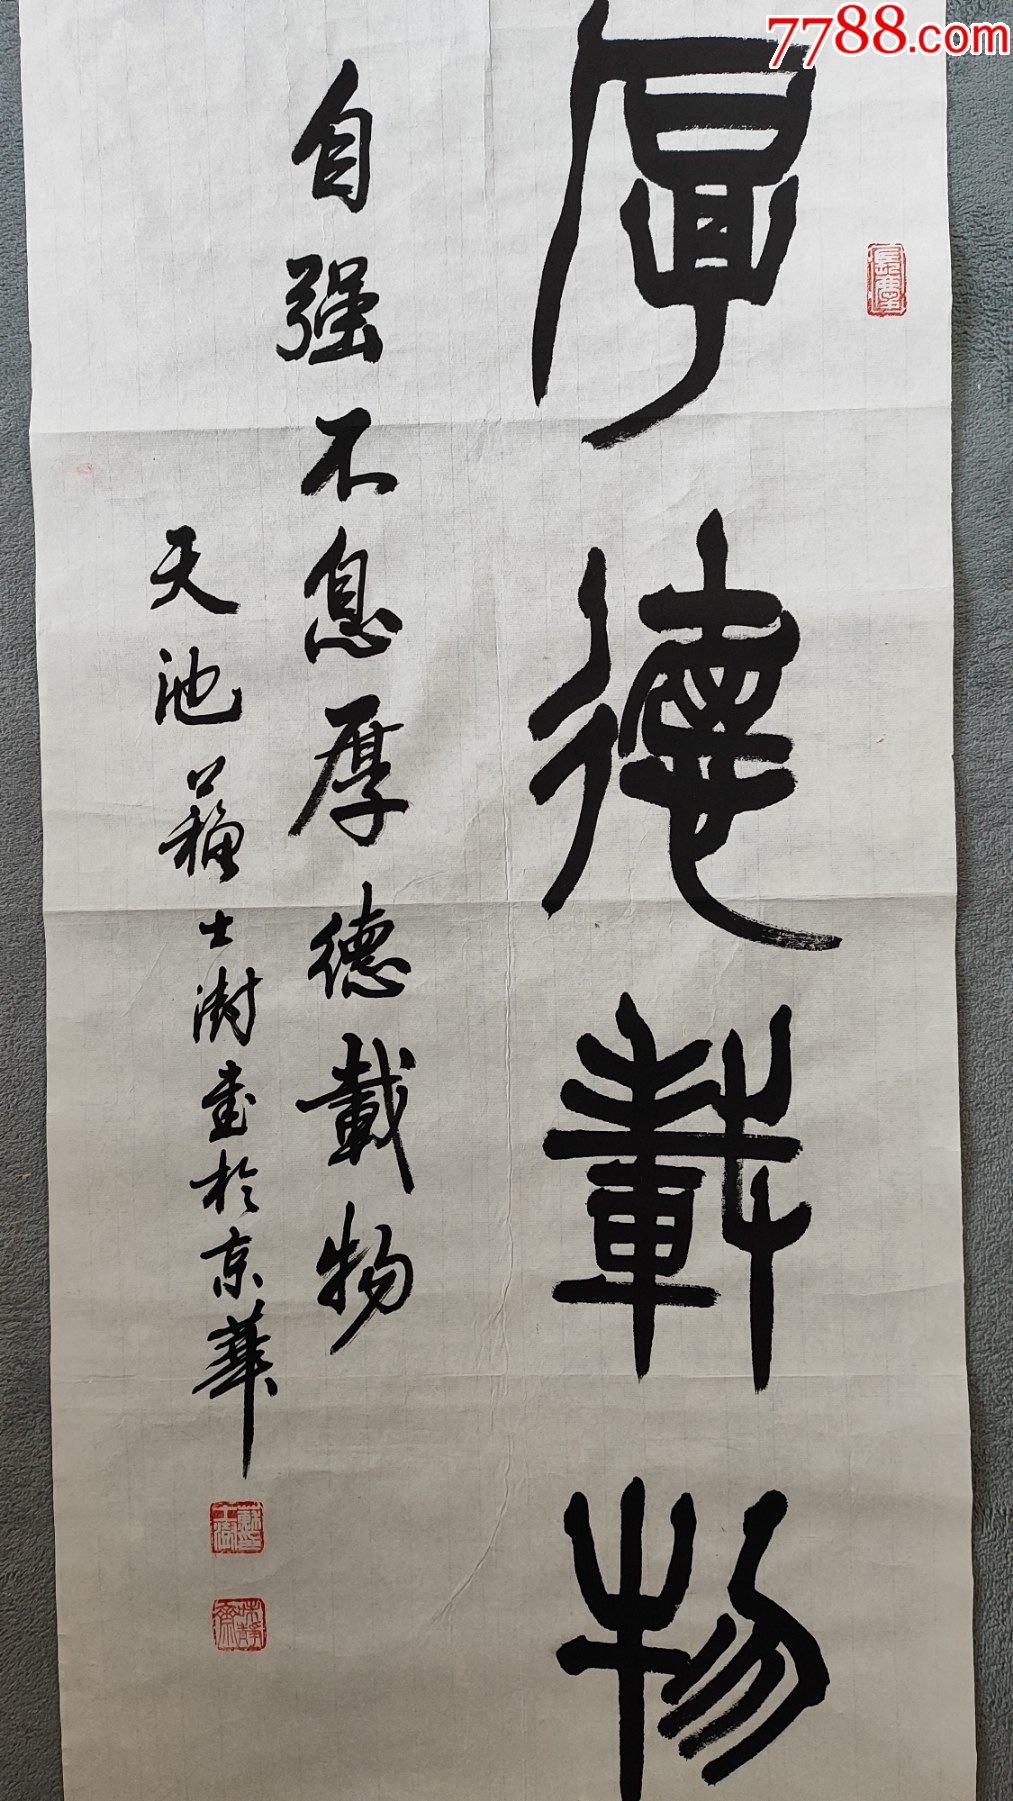 7788.com
厚德載物
自强不息厚德載物
天池蘇士澍書於京華